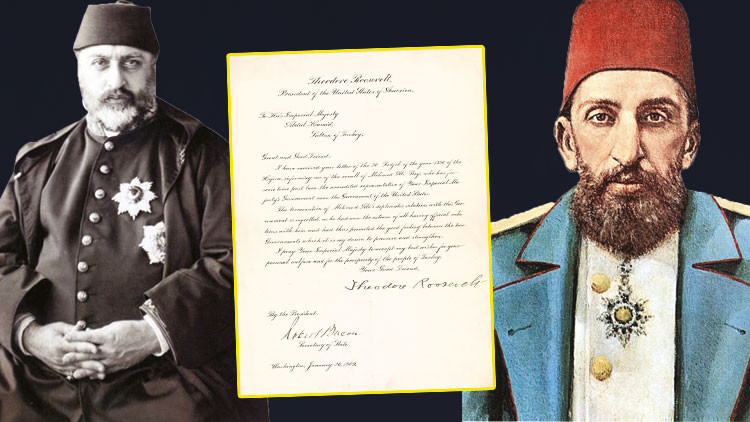 Theodore Roosevelt,
President of the United States of America,
To His Imperial Majesty
Abdul Hamid,
Sultan of Turkey.
Great and Good Friend:
I have received your letter of the 30 of the year 1326 of the
Hegira, informing me of the recall of Mehmed Ali Bey, who has for
some time past been the accredited representative of Your Imperial Ma-
jesty's Government near the Government of the United States.
The termination of Mehmed Ali's diplomatic relation with this Gov-
ernment is regretted, as he had won the esteem of all having official rela-
tions with him and had thus promoted the good feeling between the two
Governments which it is my desire to preserve and strengthen.
I pray Your Imperial Majesty to accept my best wishes for your
personal welfare and for the prosperity of the people of Turkey.
Your Good Friend,
Theodore Roosevelt
By the President:
Robert Bacon
Secretary of State.
Washington, January 30, 1909.